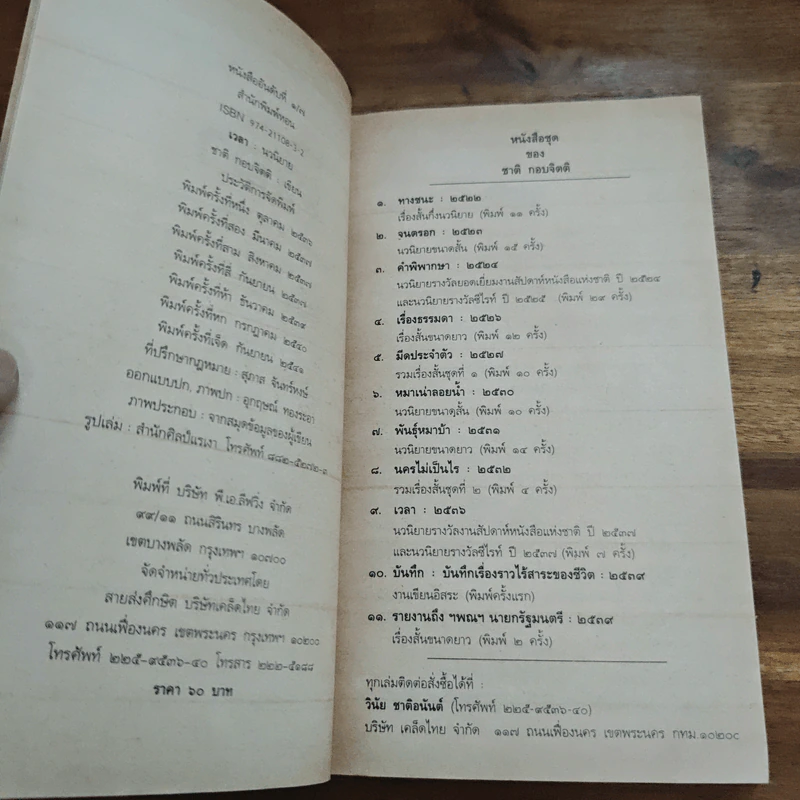 หนังสืออันดับที่ ๑/๗
สำนักพิมพ์หอน
ISBN 974-21108-3-2
เวลา : นวนิยาย
ชาติ กอบจิตติ : เขียน
ประวัติการจัดพิมพ์
พิมพ์ครั้งที่หนึ่ง ตุลาคม ๒๕๓๖
พิมพ์ครั้งที่สอง มีนาคม ๒๕๓๗
พิมพ์ครั้งที่สาม สิงหาคม ๒๕๓๗
พิมพ์ครั้งที่สี่ กันยายน ๒๕๓๗
พิมพ์ครั้งที่ห้า ธันวาคม ๒๕๓๙
พิมพ์ครั้งที่หก กรกฎาคม ๒๕๔๐
พิมพ์ครั้งที่เจ็ด กันยายน ๒๕๔๑
ที่ปรึกษากฎหมาย : สุภาส จันทร์หงษ์
ออกแบบปก, ภาพปก : อุกฤษณ์ ทองระอา
ภาพประกอบ : จากสมุดข้อมูลของผู้เขียน
รูปเล่ม : สำนักศิลป์แรเงา โทรศัพท์ ๘๘๒-๕๒๗๒-๓
พิมพ์ที่ บริษัท พี.เอ.ลีฟวิ่ง จำกัด
๙๙/๑๑ ถนนสิรินทร บางพลัด
เขตบางพลัด กรุงเทพฯ ๑๐๗๐๐
จัดจำหน่ายทั่วประเทศโดย
สายส่งศึกษิต บริษัทเคล็ดไทย จำกัด
๑๑๗ ถนนเฟื่องนคร เขตพระนคร กรุงเทพฯ ๑๐๒๐๐
โทรศัพท์ ๒๒๕-๙๕๓๖-๔๐ โทรสาร ๒๒๒-๕๑๘๘
ราคา ๖๐ บาท
หนังสือชุด
ของ
ชาติ กอบจิตติ
๑. ทางชนะ : ๒๕๒๒
เรื่องสั้นกึ่งนวนิยาย (พิมพ์ ๑๑ ครั้ง)
๒. จนตรอก : ๒๕๒๓
นวนิยายขนาดสั้น (พิมพ์ ๑๕ ครั้ง)
๓. คำพิพากษา : ๒๕๒๔
นวนิยายรางวัลยอดเยี่ยมงานสัปดาห์หนังสือแห่งชาติ ปี ๒๕๒๔
และนวนิยายรางวัลซีไรท์ ปี ๒๕๒๕ (พิมพ์ ๒๙ ครั้ง)
๔. เรื่องธรรมดา : ๒๕๒๖
เรื่องสั้นขนาดยาว (พิมพ์ ๑๒ ครั้ง)
๕. มีดประจำตัว : ๒๕๒๗
รวมเรื่องสั้นชุดที่ ๑ (พิมพ์ ๑๐ ครั้ง)
๖. หมาเน่าลอยน้ำ : ๒๕๓๐
นวนิยายขนาดสั้น (พิมพ์ ๑๐ ครั้ง)
๗. พันธุ์หมาบ้า : ๒๕๓๑
นวนิยายขนาดยาว (พิมพ์ ๑๔ ครั้ง)
๘. นครไม่เป็นไร : ๒๕๓๒
รวมเรื่องสั้นชุดที่ ๒ (พิมพ์ ๔ ครั้ง)
๙. เวลา : ๒๕๓๖
นวนิยายรางวัลงานสัปดาห์หนังสือแห่งชาติ ปี ๒๕๓๗
และนวนิยายรางวัลซีไรท์ ปี ๒๕๓๗ (พิมพ์ ๗ ครั้ง)
๑๐. บันทึก : บันทึกเรื่องราวไร้สาระของชีวิต : ๒๕๓๙
งานเขียนอิสระ (พิมพ์ครั้งแรก)
๑๑. รายงานถึง ฯพณฯ นายกรัฐมนตรี : ๒๕๓๙
เรื่องสั้นขนาดยาว (พิมพ์ ๒ ครั้ง)
ทุกเล่มติดต่อสั่งซื้อได้ที่ :
วินัย ชาติอนันต์ (โทรศัพท์ ๒๒๕-๙๕๓๖-๔๐)
บริษัท เคล็ดไทย จำกัด ๑๑๗ ถนนเฟื่องนคร เขตพระนคร กทม.๑๐๒๐๐